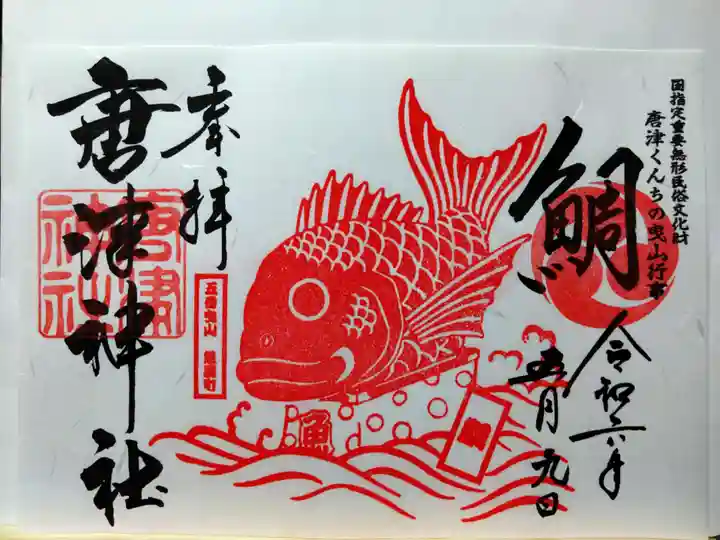 国指定重要無形民俗文化財
唐津くんちの曳山行事
鯛
令和六年
五月九日
魚
五番曳山 魚屋町
奉拝
唐津神社
唐津
神社